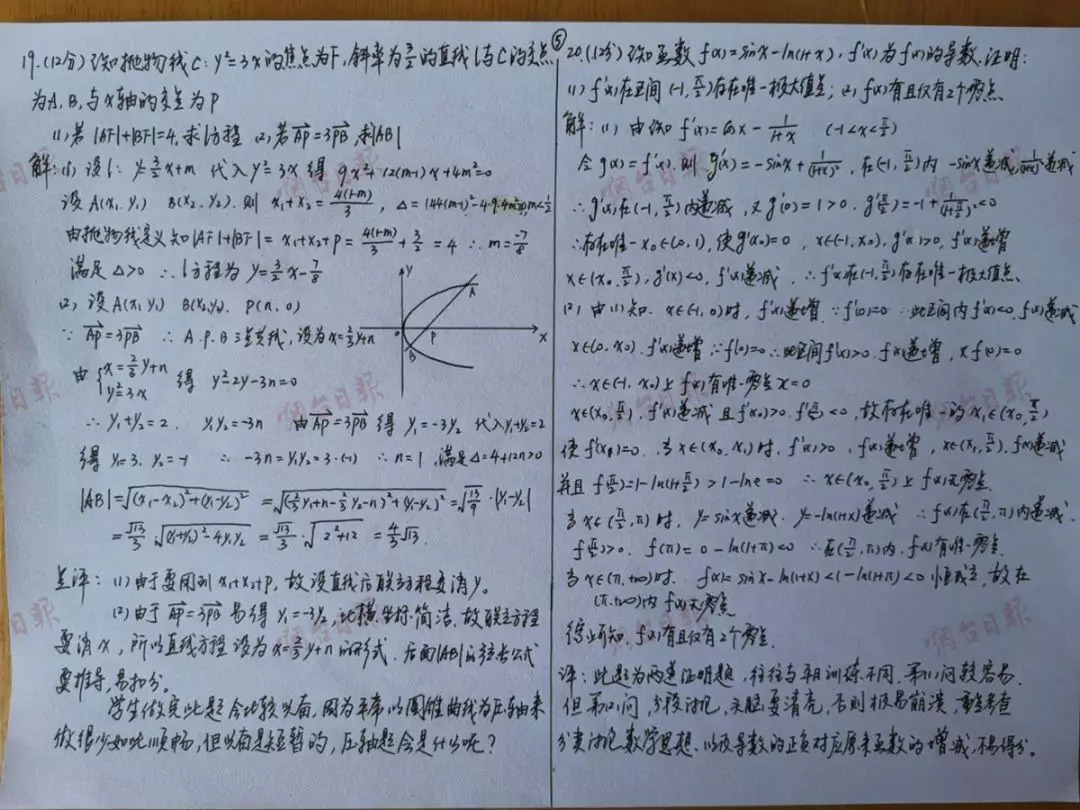 ⑤
19.(12分)已知抛物线C:y²=3x的焦点为F,斜率为3/2的直线l与C的交点
为A,B,与x轴的交点为P
(1)若|AF|+|BF|=4,求l方程 (2)若AP=3PB,求|AB|
解:(1) 设l: y=3/2x+m 代入y²=3x得 9x²+12(m-1)x+4m²=0
设A(x₁,y₁) B(x₂,y₂),则 x₁+x₂=4(1-m)/3, Δ=144(m-1)²-4·9·4m²>0,m<1/2
由抛物线定义知|AF|+|BF|=x₁+x₂+p=4(1-m)/3+3/2=4 ∴m=-7/8
满足Δ>0 ∴l方程为 y=3/2x-7/8
(2) 设A(x₁,y₁) B(x₂,y₂), P(n,0)
∵ AP=3PB ∴ A.P.B三点共线,设为x=2/3y+n
由{x=2/3y+n y²=3x 得 y²-2y-3n=0
∴ y₁+y₂=2, y₁y₂=-3n 由AP=3PB得 y₁=-3y₂ 代入y₁+y₂=2
得 y₁=3, y₂=-1 ∴ -3n=y₁y₂=3·(-1) ∴n=1,满足Δ=4+12n>0
|AB|=√((x₁-x₂)²+(y₁-y₂)²)=√((2/3y₁+n-2/3y₂-n)²+(y₁-y₂)²)=√(13/9)·|y₁-y₂|
=√13/3 √((y₁+y₂)²-4y₁y₂)=√13/3·√(2²+12)=4/3√13.
y
A
P
x
B
点评:(1)由于要用到x₁+x₂+p,故设直线后联立方程要消y。
(2)由于AP=3PB易得y₁=-3y₂,比横坐标简洁,故联立方程
要消x,所以直线方程设为x=2/3y+n的形式,后面|AB|的弦长公式
要推导,易扣分。
学生做完此题会比较兴奋,因为平常以圆锥曲线为压轴来
做很少如此顺畅,但兴奋是短暂的,压轴题会是什么呢?
20.(12分)已知函数f(x)=sinx-ln(1+x),f'(x)为f(x)的导数,证明:
(1) f'(x)在区间(-1,π/2)存在唯一极大值点; (2) f(x)有且仅有2个零点
解:(1) 由已知f'(x)=cosx-1/(1+x) (-1<x<π/2)
令g(x)=f'(x),则g'(x)=-sinx+1/(1+x)²,在(-1,π/2)内 -sinx递减,1/(1+x)²递减
∴g'(x)在(-1,π/2)内递减,又g'(0)=1>0, g'(π/2)=-1+1/(1+π/2)²<0
∴存在唯一x₀∈(0,1),使g'(x₀)=0, x∈(-1,x₀),g'(x)>0, f'(x)递增
x∈(x₀,π/2),g'(x)<0, f'(x)递减,∴f'(x)在(-1,π/2)存在唯一极大值点
(2) 由(1)知,x∈(-1,0)时,f'(x)递增 ∵f'(0)=0 ∴此区间内f'(x)<0,f(x)递减
x∈(0,x₀),f'(x)递增 ∵f'(0)=0∴此区间f'(x)>0,f(x)递增,又f(0)=0
∴x∈(-1,x₀)上f(x)有唯一零点x=0
x∈(x₀,π/2),f'(x)递减且f'(x₀)>0,f'(π/2)<0,故存在唯一的x₁∈(x₀,π/2)
使f'(x₁)=0,当x∈(x₀,x₁)时,f'(x)>0,f(x)递增,x∈(x₁,π/2),f(x)递减
并且f(π/2)=1-ln(1+π/2)>1-lne=0 ∴x∈(x₀,π/2)上f(x)无零点
当x∈(π/2,π)时,y=sinx递减,y=-ln(1+x)递减 ∴f(x)在(π/2,π)内递减,
f(π/2)>0, f(π)=0-ln(1+π)<0 ∴在(π/2,π)内,f(x)有唯一零点
当x∈(π,+∞)时,f(x)=sinx-ln(1+x)<1-ln(1+π)<0恒成立,故在
(π,+∞)内f(x)无零点
综上可知,f(x)有且仅有2个零点
评:此题为两道证明题,往往与平日训练不同,第(1)问较容易,
但第(2)问,分段讨论,头脑要清亮,否则极易崩溃,重点考查
分类讨论数学思想,以及导数的正负对应原来函数的增减,不易得分。
烟台日报